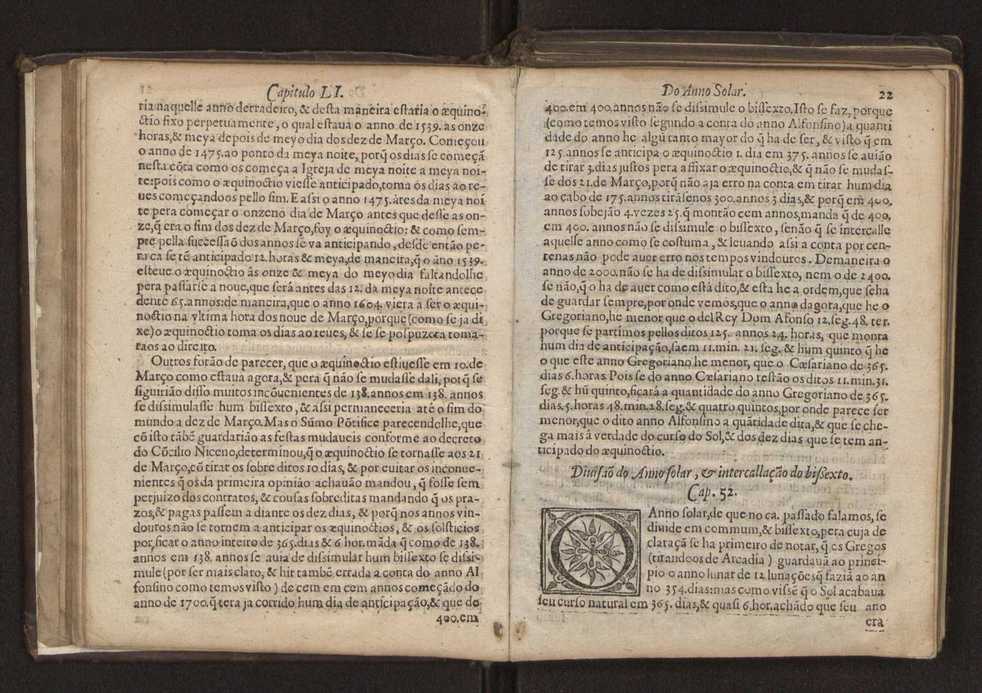 Capitulo LI.
ria naquelle anno derradeiro, & desta maneira estaria o æquino-
ctio fixo perpetuamente, o qual estaua o anno de 1539. as onze
horas, & meya depois de meyo dia dos dez de Março. Começou
o anno de 1475. ao ponto da meya noite, porq̃ os dias se começã
nesta cõta como os começa a Igreja de meya noite a meya noi-
te: pois como o æquinoctio viesse anticipado, toma os dias ao re-
ues começandoos pello fim. E assi o anno 1475. ãtes da meya noi
te pera começar o onzeno dia de Março antes que desse as on-
ze, q̃ era o fim dos dez de Março, foy o æquinoctio: & como sem-
pre pella successaõ dos annos se va anticipando, desde então pe-
ra ca se tẽ anticipado 12. horas & meya, de maneira, q̃ o ãno 1539.
esteue o æquinoctio às onze & meya do meyo dia faltandolhe
pera passarse a noue, que será antes das 12. da meya noite antece
dente 65. annos: de maneira, que o anno 1604. viera a ser o æqui-
noctio na vltima hora dos noue de Março, porque (como se ja di
xe) o æquinoctio toma os dias ao reues, & se se pospuzera toma-
raos ao direito.
Outros forão de parecer, que o æquinoctio estiuesse em 10. de
Março como estaua agora, & pera q̃ não se mudasse dali, porq̃ se
siguirião disso muitos incõuenientes de 138. annos em 138. annos
se dissimulasse hum bissexto, & assi permaneceria até o fim do
mundo a dez de Março. Mas o Sũmo Põtifice parecendolhe, que
cõ isto tãbẽ guardarião as festas mudaueis conforme ao decreto
do Cõcilio Niceno, determinou, q̃ o æquinoctio se tornasse aos 21
de Março, cõ tirar os sobre ditos 10 dias, & por euitar os inconue-
nientes q̃ os da primeira opinião achauão mandou, q̃ fosse sem
perjuizo dos contratos, & cousas sobreditas mandando q̃ os pra-
zos, & pagas passem a diante os dez dias, & porq̃ nos annos vin-
douros não se tornem a anticipar os æquinoctios, & os solsticios
por ficar o anno inteiro de 365. dias & 6 hor. mãda q̃ como de 138.
annos em 138. annos se auia de dissimular hum bissexto se dissi-
mule (por ser mais claro, & hir tambẽ errada a conta do anno Al
fonsino como temos visto) de cem em cem annos começãdo do
anno de 1700. q̃ tera ja corrido hum dia de anticipação, & que de
400. em
Do Anno Solar.
22
400. em 400. annos não se dissimule o bissexto. Isto se faz, porque
(como temos visto segundo a conta do anno Alfonsino) a quanti
dade do anno he algũ tanto mayor do q̃ ha de ser, & visto q̃ em
125. annos se anticipa o æquinoctio 1. dia em 375. annos se auião
de tirar 3. dias justos pera affixar o æquinoctio, & q̃ não se mudas-
se dos 21. de Março, porq̃ não aja erro na conta em tirar hum dia
ao cabo de 175. annos tirãsenos 300. annos 3 dias, & porq̃ em 400.
annos sobejão 4. vezes 25. q̃ montão cem annos, manda q̃ de 400.
em 400. annos não se dissimule o bissexto, senão q̃ se intercalle
aquelle anno como se costuma, & leuando assi a conta por cen-
tenas não pode auer erro nos tempos vindouros. De maneira o
anno de 2000. não se ha de dissimular o bissexto, nem o de 2400.
se não, q̃ o ha de auer como está dito, & esta he a ordem, que se ha
de guardar sempre, por onde vemos, que o anno dagora, que he o
Gregoriano, he menor que o del Rey Dom Afonso 12. seg. 48. ter.
porque se partimos pellos ditos 125. annos 24. horas, que monta
hum dia de anticipação, saem 11. min. 21. seg. & hum quinto q̃ he
o que este anno Gregoriano he menor, que o Cæsariano de 365.
dias 6. horas. Pois se do anno Cæsariano restão os ditos 11. min. 31.
seg. & hũ quinto, ficará a quantidade do anno Gregoriano de 365.
dias. 5. horas 48. min. 28. seg. & quatro quintos, por onde parece ser
menor, que o dito anno Alfonsino a quãtidade dita, & que se che-
ga mais á verdade do curso do Sol, & dos dez dias que se tem an-
ticipado do æquinoctio.
Diuisaõ do Anno solar, & intercallação do bissexto.
Cap. 52.
O Anno solar, de que no ca. passado falamos, se
diuide em commum, & bissexto, pera cuja de
claraçã se ha primeiro de notar, q̃ os Gregos
(tirando os de Arcadia) guardauã ao princi-
pio o anno lunar de 12. lunações q̃ faziã ao an
no 354. dias: mas como vissẽ q̃ o Sol acabaua
seu curso natural em 365. dias, & quasi 6. hor. achãdo que seu ano
era